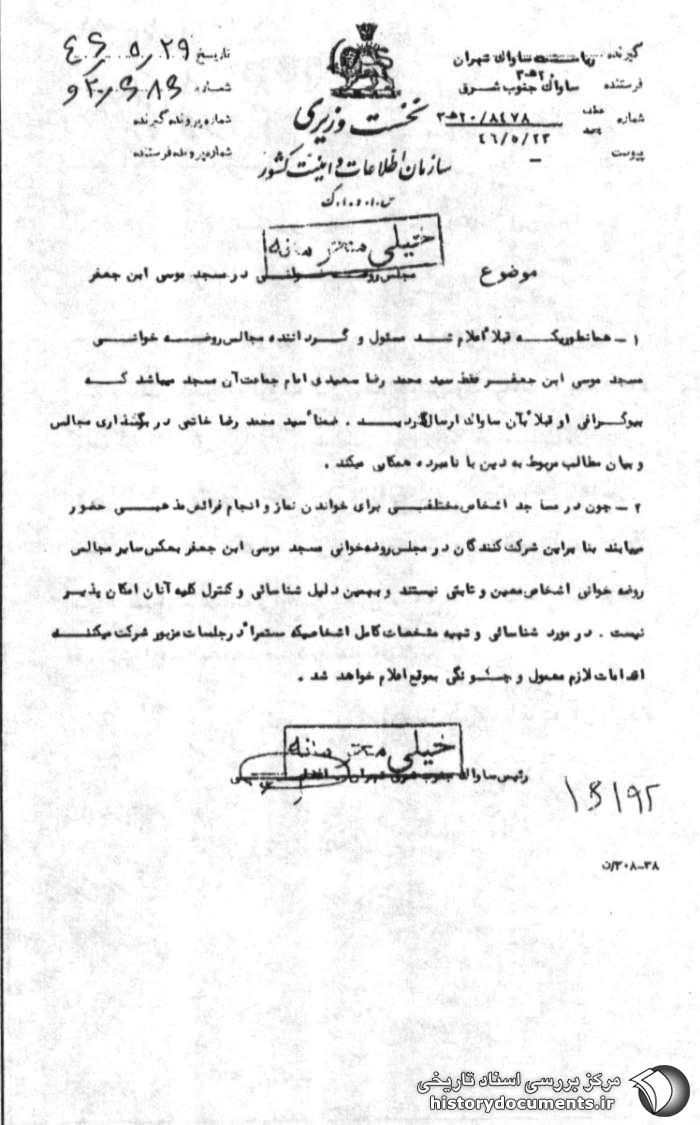 گیرنده ریاست ساواک تهران
۳-۲
فرستنده ساواک جنوب شرق
شماره عطف ۸۴۷۸/۲۰ه‍ ۳
۴۶/۵/۲۳
پیوست -
نخست وزیری
سازمان اطلاعات و امنیت کشور
س.ا.و.ا.ک
تاریخ ۴۶/۵/۲۹
شماره
شماره پرونده گیرنده
شماره پرونده فرستنده
خیلی محرمانه
موضوع مجلس روضه خوانی در مسجد موسی ابن جعفر
۱ - همانطوریکه قبلاً اعلام شد مسئول و گرداننده مجالس روضه خوانی
مسجد موسی ابن جعفر فقط سید محمد رضا سعیدی امام جماعت آن مسجد میباشد که
بیوگرافی او قبلاً بآن ساواک ارسال گردید . ضمناً سید محمد رضا خاتمی در برگذاری مجالس
و بیان مطالب مربوط به دین با نامبرده همکاری میکند .
۲ - چون در مساجد اشخاص مختلفی برای خواندن نماز و انجام فرائض مذهبی حضور
مییابند بنا براین شرکت کنندگان در مجلس روضه خوانی مسجد موسی ابن جعفر بعکس سایر مجالس
روضه خوانی اشخاص معین و ثابتی نیستند و بهمین دلیل شناسائی و کنترل کلیه آنان امکان پذیر
نیست . در مورد شناسائی و تهیه مشخصات کامل اشخاصیکه مستمراً در جلسات مزبور شرکت میکنند
اقدامات لازم معمول و چگونگی بموقع اعلام خواهد شد .
خیلی محرمانه
رئیس ساواک جنوب شرق تهران
۱۶۱۹۲
۳۸-۳۰۸/ن
مرکز بررسی اسناد تاریخی
historydocuments.ir